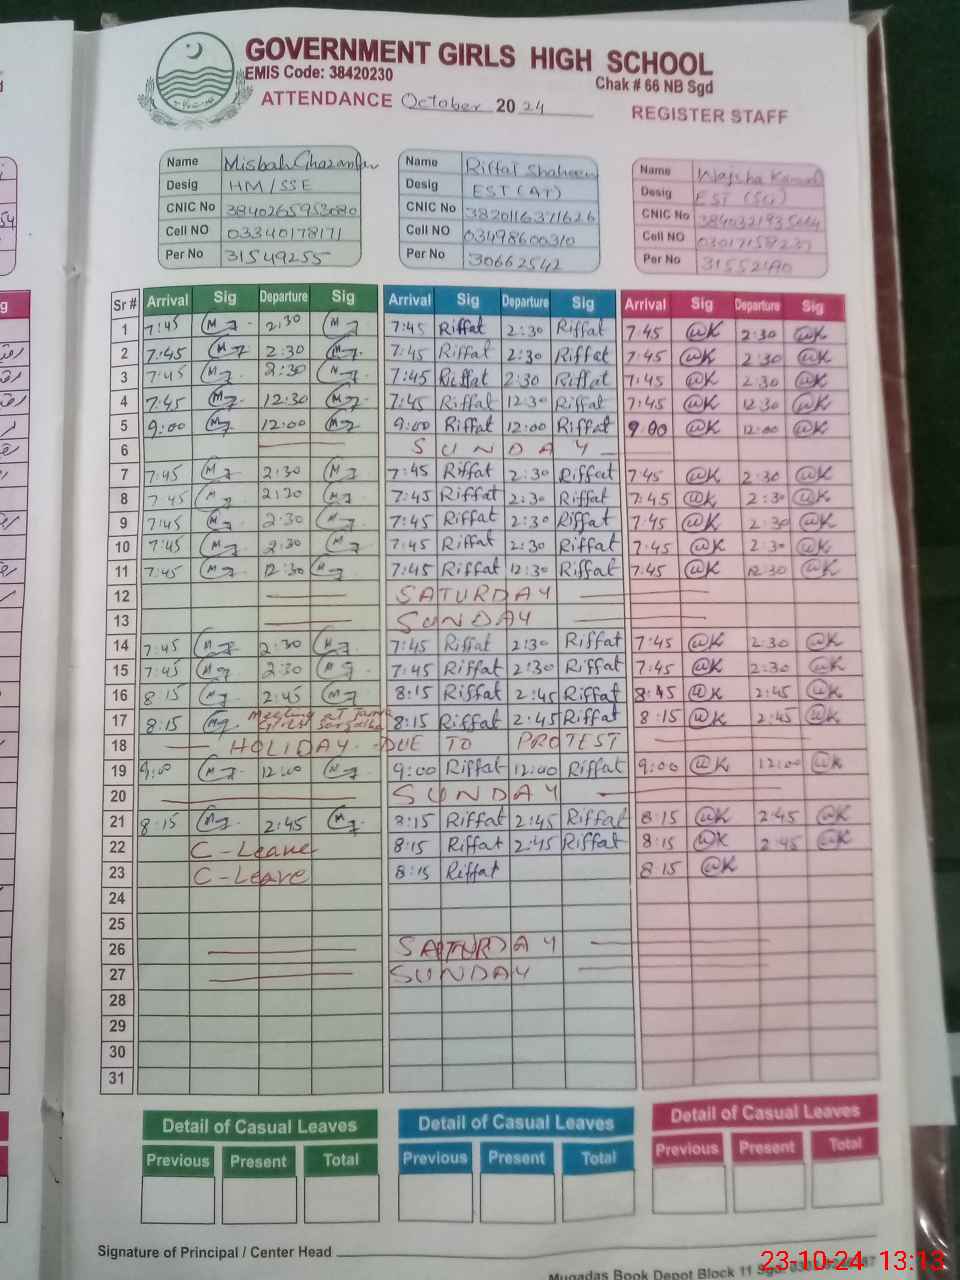 GOVERNMENT GIRLS HIGH SCHOOL
EMIS Code: 38420230
Chak # 66 NB Sgd
ATTENDANCE October 2024
REGISTER STAFF
Name Misbah Ghazanfar
Desig HM/SSE
CNIC No 3840265953080
Cell NO 03340178171
Per No 31549255
Name Riffat Shaheen
Desig EST (AT)
CNIC No 3820116371626
Cell NO 03498600310
Per No 30662542
Name Wajiha Kanwal
Desig EST
CNIC No
Cell NO
Per No
Sr # Arrival Sig Departure Sig Arrival Sig Departure Sig Arrival Sig Departure Sig
1 7:45 2:30 7:45 Riffat 2:30 Riffat 7:45 @K 2:30 @K
2 7:45 2:30 7:45 Riffat 2:30 Riffat 7:45 @K 2:30 @K
3 7:45 2:30 7:45 Riffat 2:30 Riffat 7:45 @K 2:30 @K
4 7:45 12:30 7:45 Riffat 12:30 Riffat 7:45 @K 12:30 @K
5 9:00 12:00 9:00 Riffat 12:00 Riffat 9:00 @K 12:00 @K
6 SUNDAY
7 7:45 2:30 7:45 Riffat 2:30 Riffat 7:45 @K 2:30 @K
8 7:45 2:30 7:45 Riffat 2:30 Riffat 7:45 @K 2:30 @K
9 7:45 2:30 7:45 Riffat 2:30 Riffat 7:45 @K 2:30 @K
10 7:45 2:30 7:45 Riffat 2:30 Riffat 7:45 @K 2:30 @K
11 7:45 12:30 7:45 Riffat 12:30 Riffat 7:45 @K 12:30 @K
12 SATURDAY
13 SUNDAY
14 7:45 2:30 7:45 Riffat 2:30 Riffat 7:45 @K 2:30 @K
15 7:45 2:30 7:45 Riffat 2:30 Riffat 7:45 @K 2:30 @K
16 8:15 2:45 8:15 Riffat 2:45 Riffat 8:15 @K 2:45 @K
17 8:15 Meeting at 8:15 Riffat 2:45 Riffat 8:15 @K 2:45 @K
18 HOLIDAY DUE TO PROTEST
19 9:00 12:00 9:00 Riffat 12:00 Riffat 9:00 @K 12:00 @K
20 SUNDAY
21 8:15 2:45 8:15 Riffat 2:45 Riffat 8:15 @K 2:45 @K
22 C-Leave 8:15 Riffat 2:45 Riffat 8:15 @K 2:45 @K
23 C-Leave 8:15 Riffat 8:15 @K
24
25
26 SATURDAY
27 SUNDAY
28
29
30
31
Detail of Casual Leaves Detail of Casual Leaves Detail of Casual Leaves
Previous Present Total Previous Present Total Previous Present Total
Signature of Principal / Center Head
Muqadas Book Depot Block 11
23-10-24 13:13